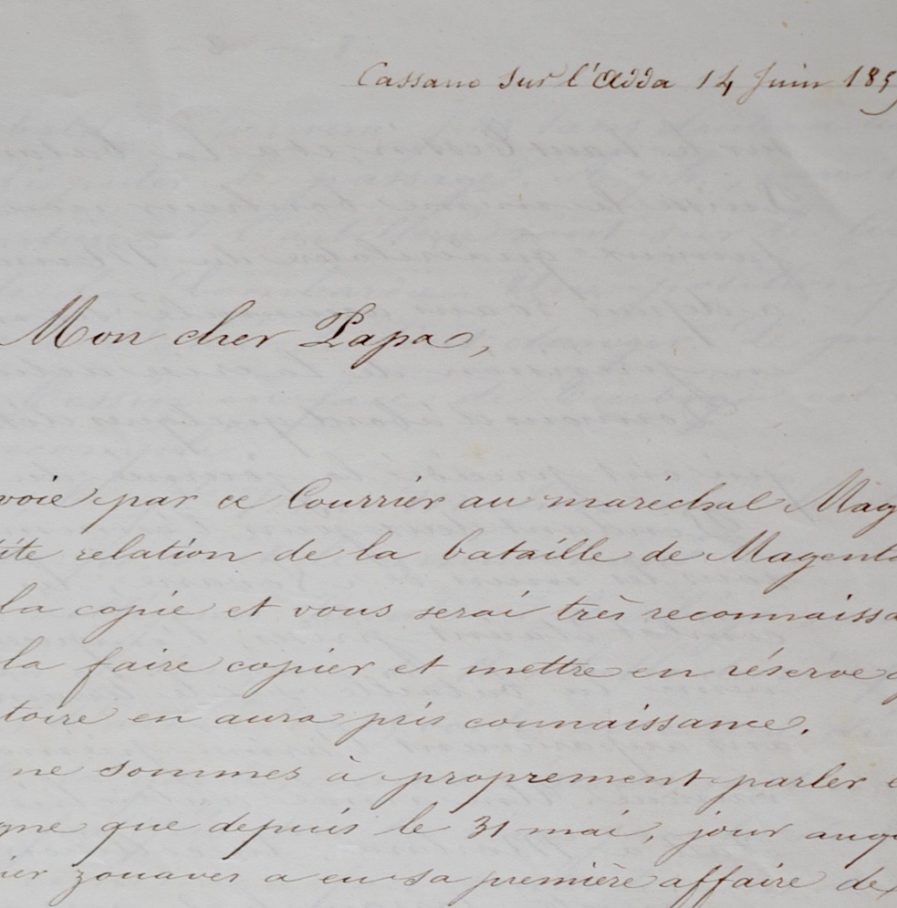 Cassano sur l'Adda 14 Juin 185
Mon cher Papa,
voie par ce Courrier au maréchal Mag
tite relation de la bataille de Magenta
la copie et vous serai très reconnaissa
la faire copier et mettre en réserve q
toire en aura pris connaissance.
ne sommes à proprement parler e
gne que depuis le 31 mai, jour auqu
ier zouaves a eu sa première affaire de